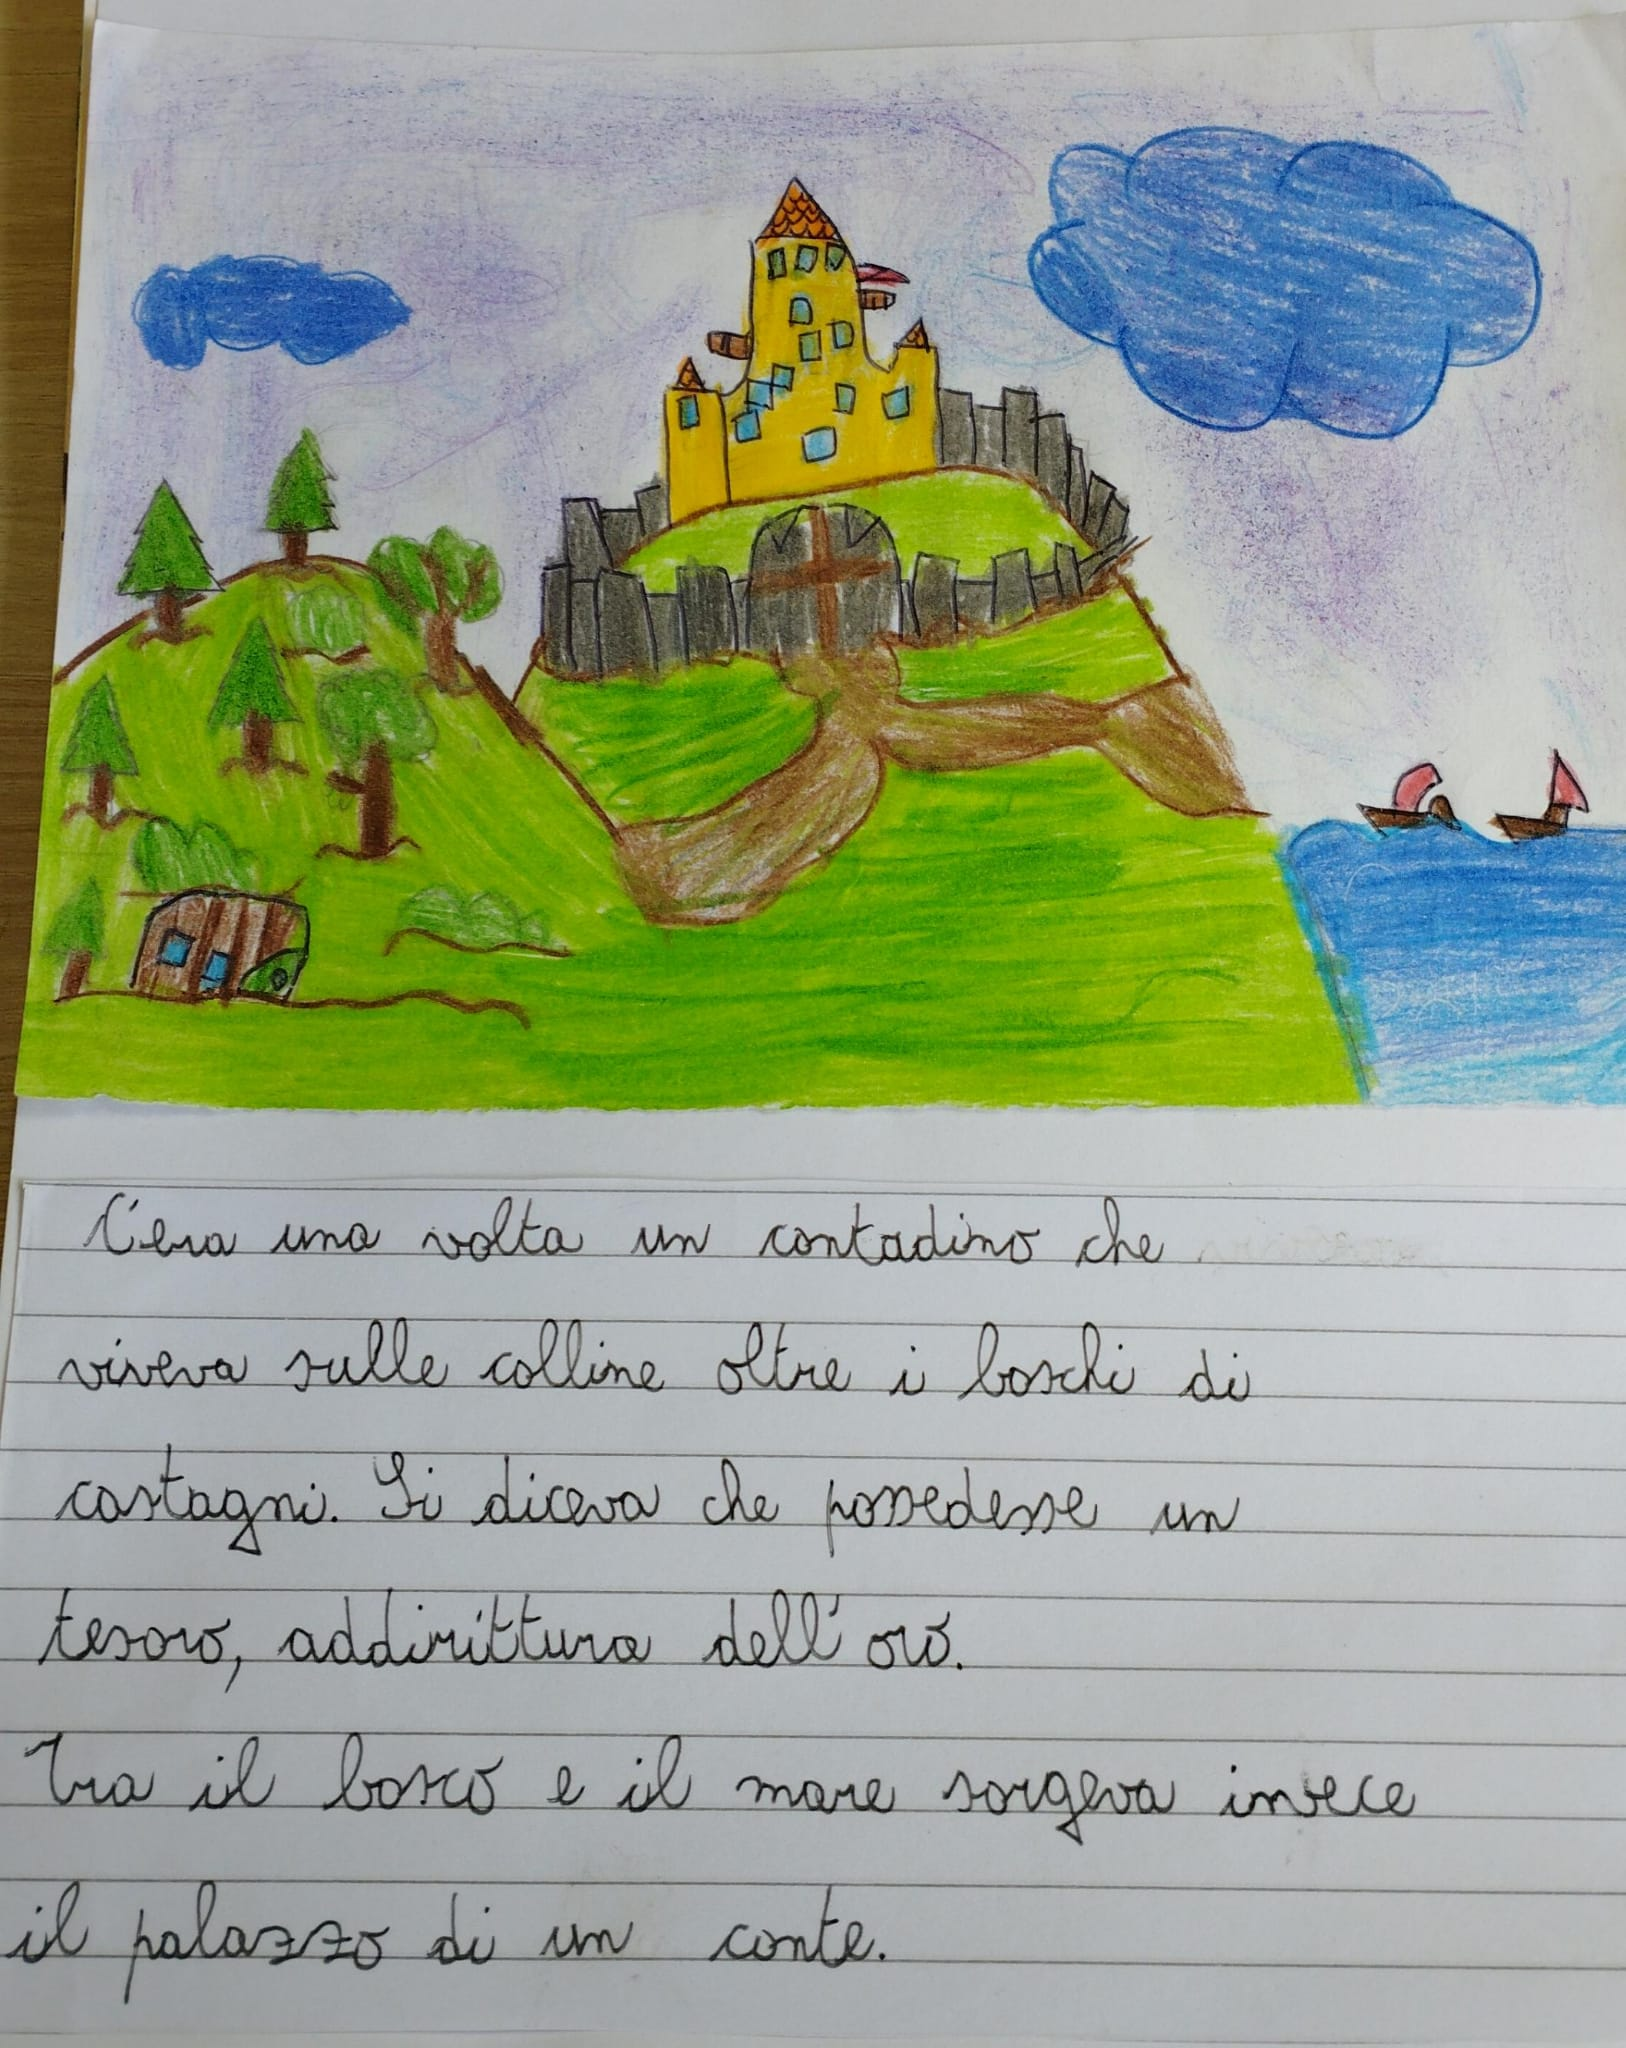 C'era una volta un contadino che
viveva sulle colline oltre i boschi di
castagni. Si diceva che possedesse un
tesoro, addirittura dell'oro.
Tra il bosco e il mare sorgeva invece
il palazzo di un conte.